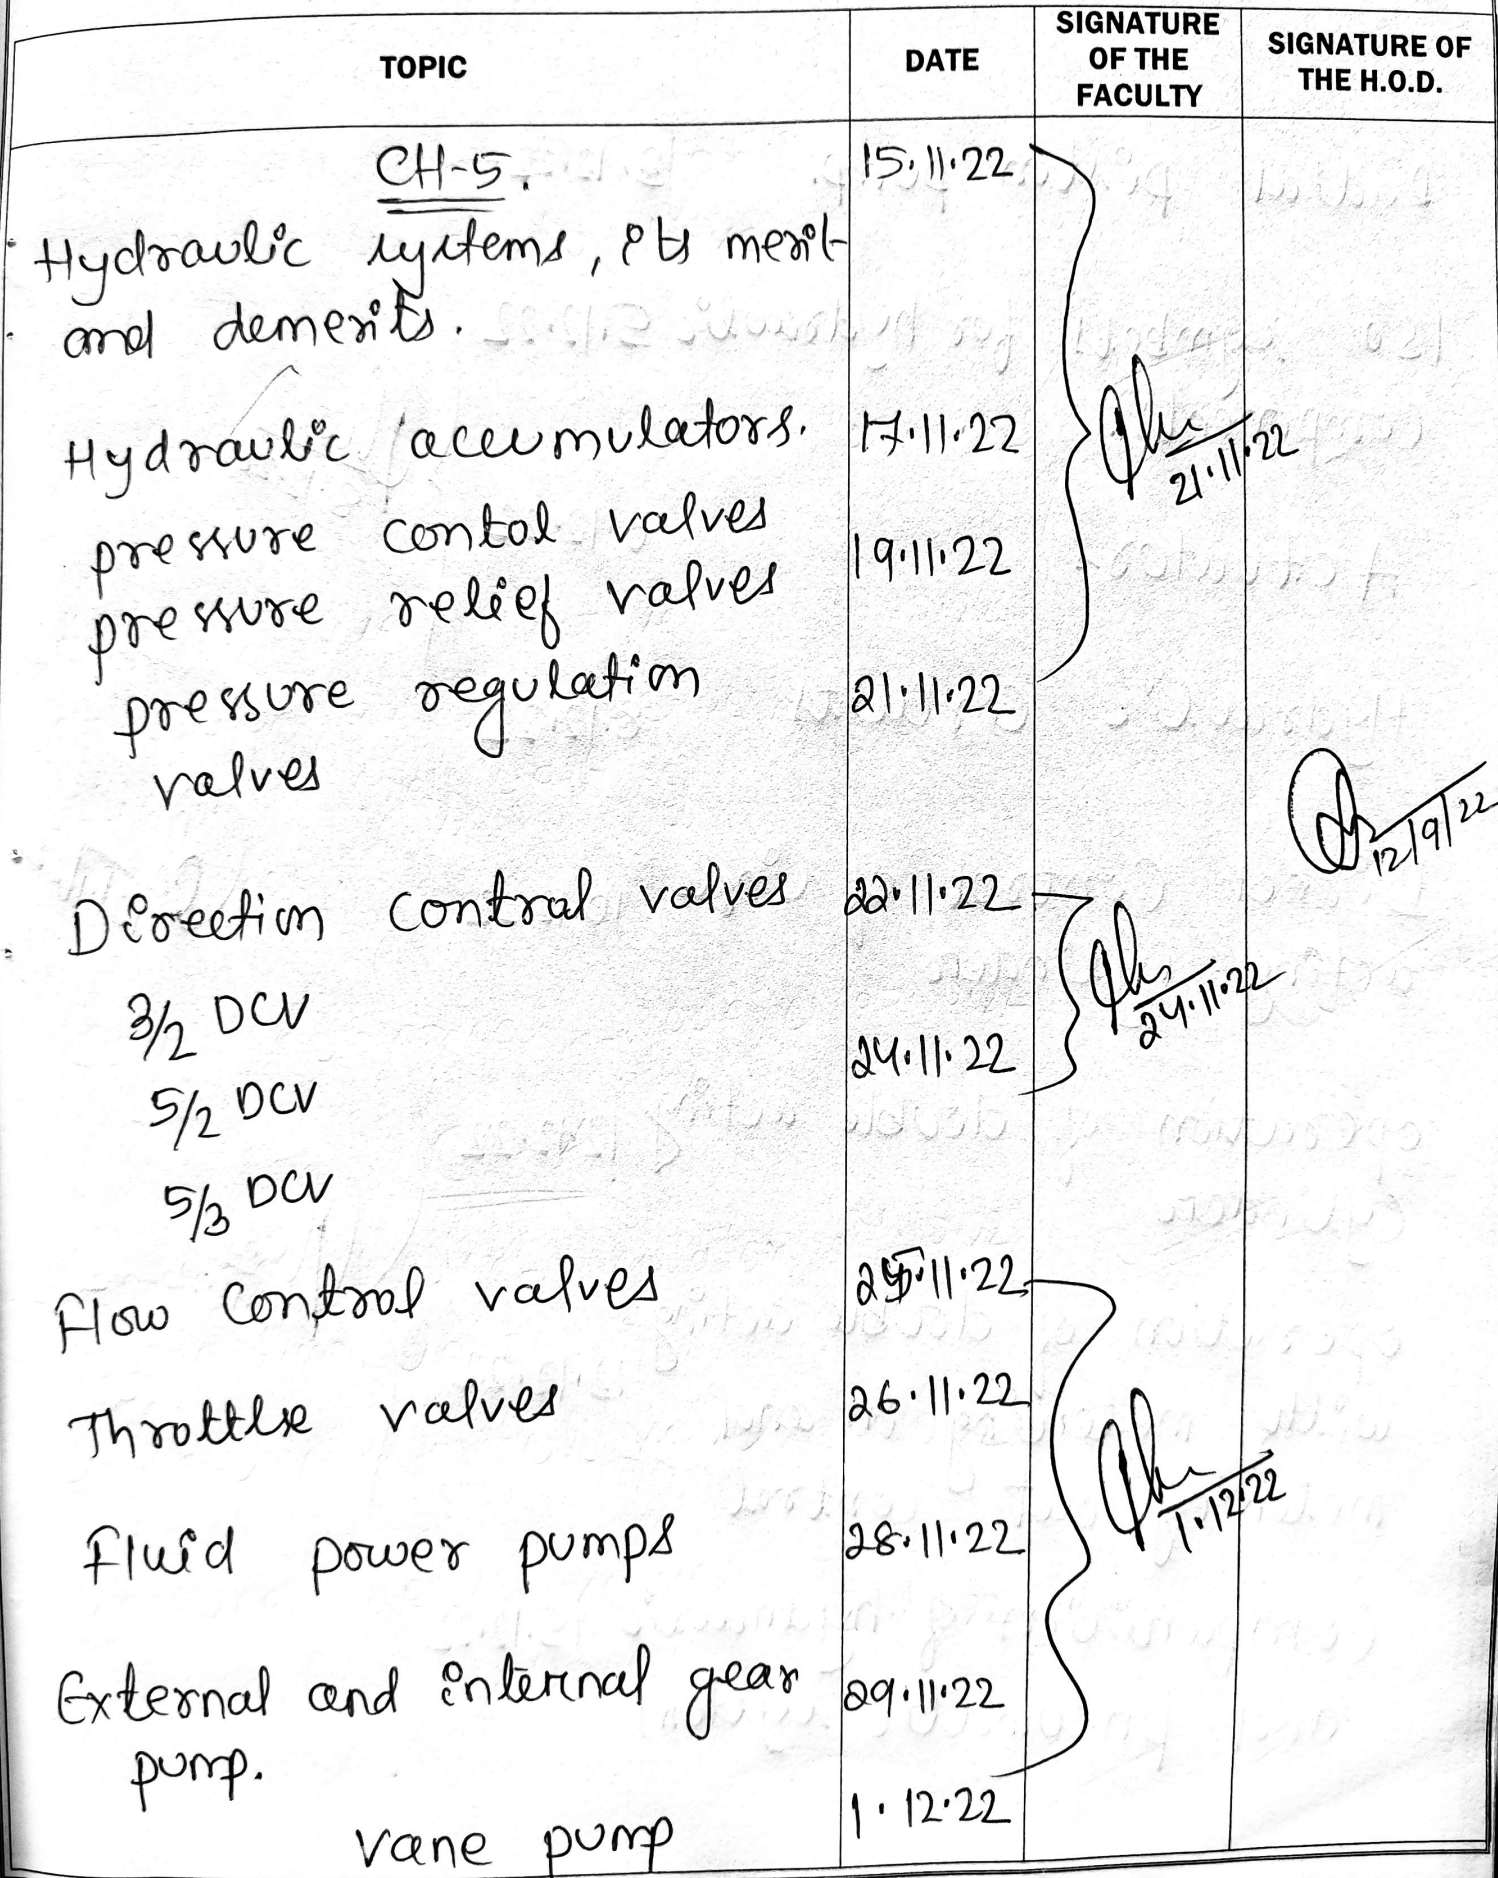 TOPIC DATE SIGNATURE OF THE FACULTY SIGNATURE OF THE H.O.D.
CH-5. 15.11.22
Hydraulic systems, its merit
and demerits.
Hydraulic accumulators. 17.11.22
21.11.22
pressure contol valves
19.11.22
pressure relief valves
pressure regulation 21.11.22
valves
12/9/22
Direction control valves 22.11.22
24.11.22
3/2 DCV
24.11.22
5/2 DCV
5/3 DCV
Flow control valves 25.11.22
Throttle valves 26.11.22
1.12.22
Fluid power pumps 28.11.22
External and internal gear 29.11.22
pump.
1.12.22
vane pump